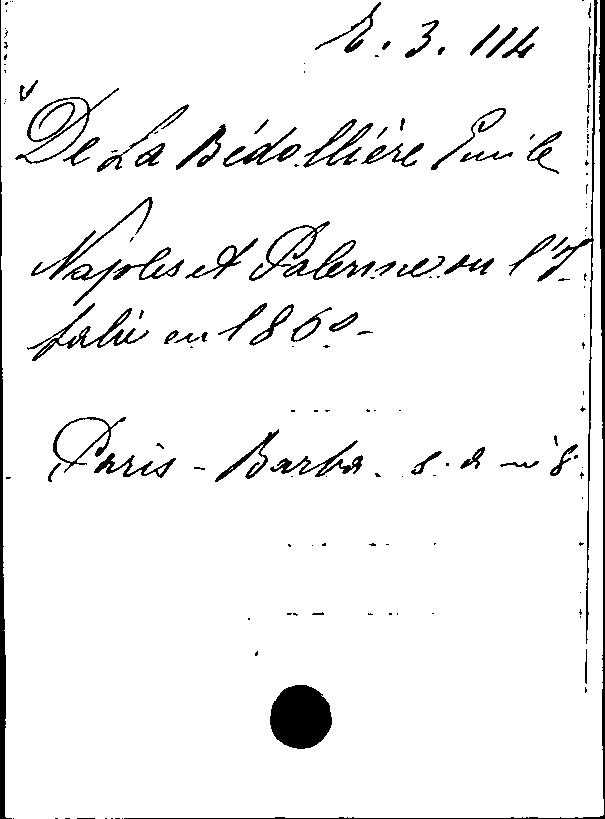 E. 3. 114
De La Bédollière Emile
Naples et Palerme ou l'I-
talie en 1860-
Paris - Barba. s. a in 8.